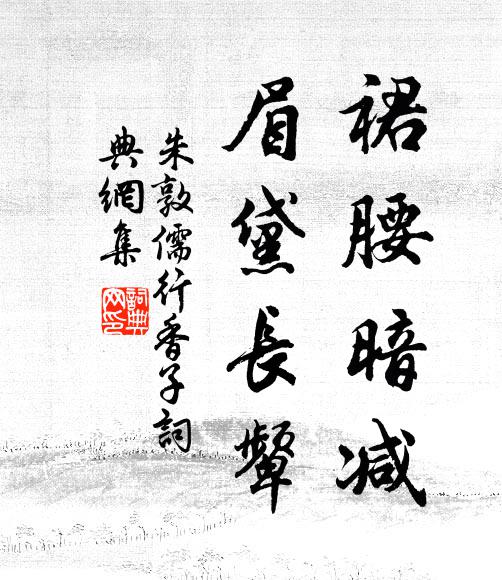 裙腰暗减
眉黛長顰
朱敦儒行香子詞
典網集
詞典网印